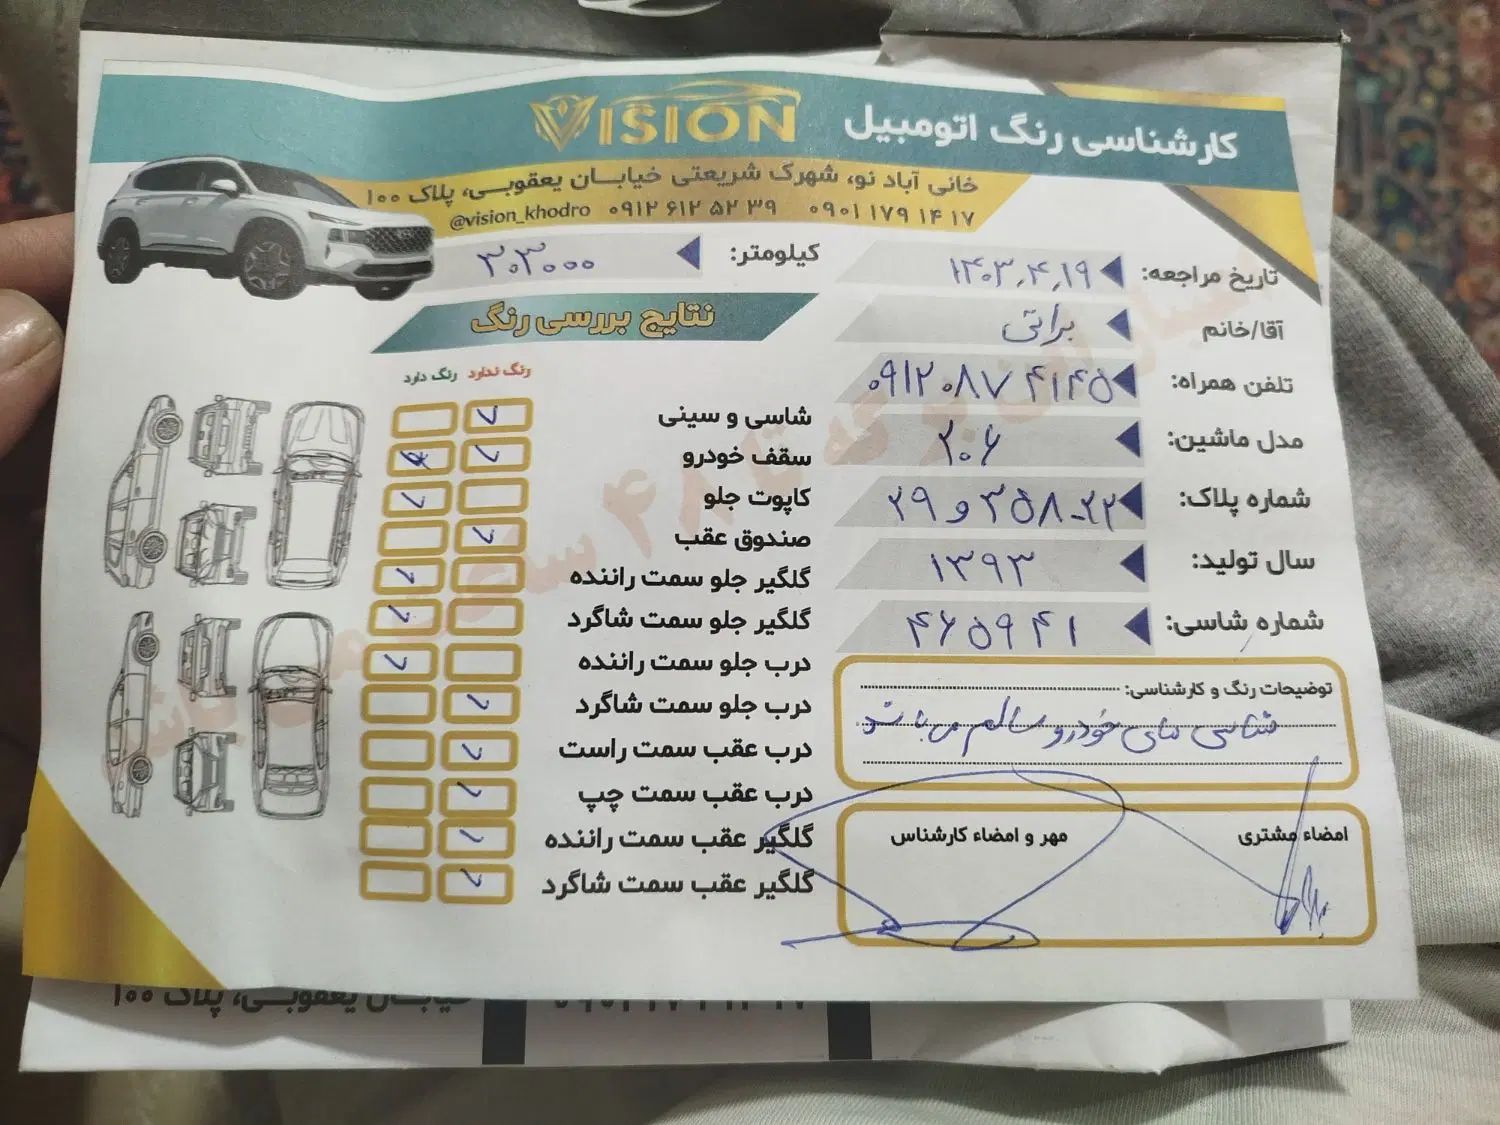 VISION
کارشناسی رنگ اتومبیل
خانی آباد نو، شهرک شریعتی خیابان یعقوبی، پلاک ۱۰۰
۰۹۰۱ ۱۷۹ ۱۴ ۱۷ ۰۹۱۲ ۶۱۲ ۵۲ ۳۹ @vision_khodro
تاریخ مراجعه: ۱۴۰۳,۴,۱۹
کیلومتر: ۳۰۳۰۰۰
آقا/خانم براتی
تلفن همراه: ۰۹۱۲۰۸۷۴۱۴۵
مدل ماشین: ۲۰۶
شماره پلاک: ۲۹ و ۳۵۸-۲۲
سال تولید: ۱۳۹۳
شماره شاسی: ۴۶۵۹۴۱
توضیحات رنگ و کارشناسی:
شاسی های خودرو سالم می باشد
امضاء مشتری
مهر و امضاء کارشناس
نتایج بررسی رنگ
رنگ ندارد رنگ دارد
شاسی و سینی
سقف خودرو
کاپوت جلو
صندوق عقب
گلگیر جلو سمت راننده
گلگیر جلو سمت شاگرد
درب جلو سمت راننده
درب جلو سمت شاگرد
درب عقب سمت راست
درب عقب سمت چپ
گلگیر عقب سمت راننده
گلگیر عقب سمت شاگرد
خیابان یعقوبی، پلاک ۱۰۰